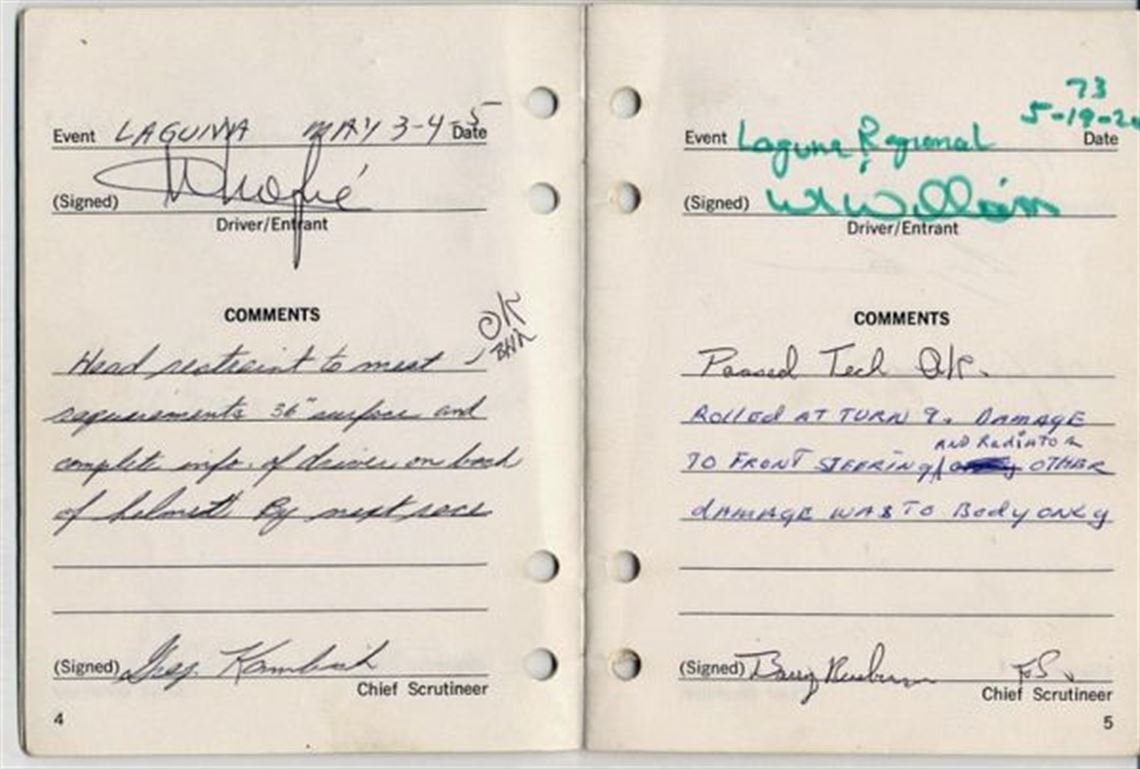 Event LAGUNA MAY 3-4-5 Date
(Signed)
Driver/Entrant
COMMENTS
OK
BHK
Head restraint to meet
requirements 36" surface and
complete info. of driver on back
of helmet By next race
(Signed) Greg
Chief Scrutineer
4
73
5-19-20
Event Laguna Regional Date
(Signed) Wm Williams
Driver/Entrant
COMMENTS
Passed Tech O.K.
ROLLED AT TURN 9. DAMAGE
AND RADIATOR
TO FRONT STEERING OTHER
DAMAGE WAS TO BODY ONLY
(Signed) Barry
Chief Scrutineer
5